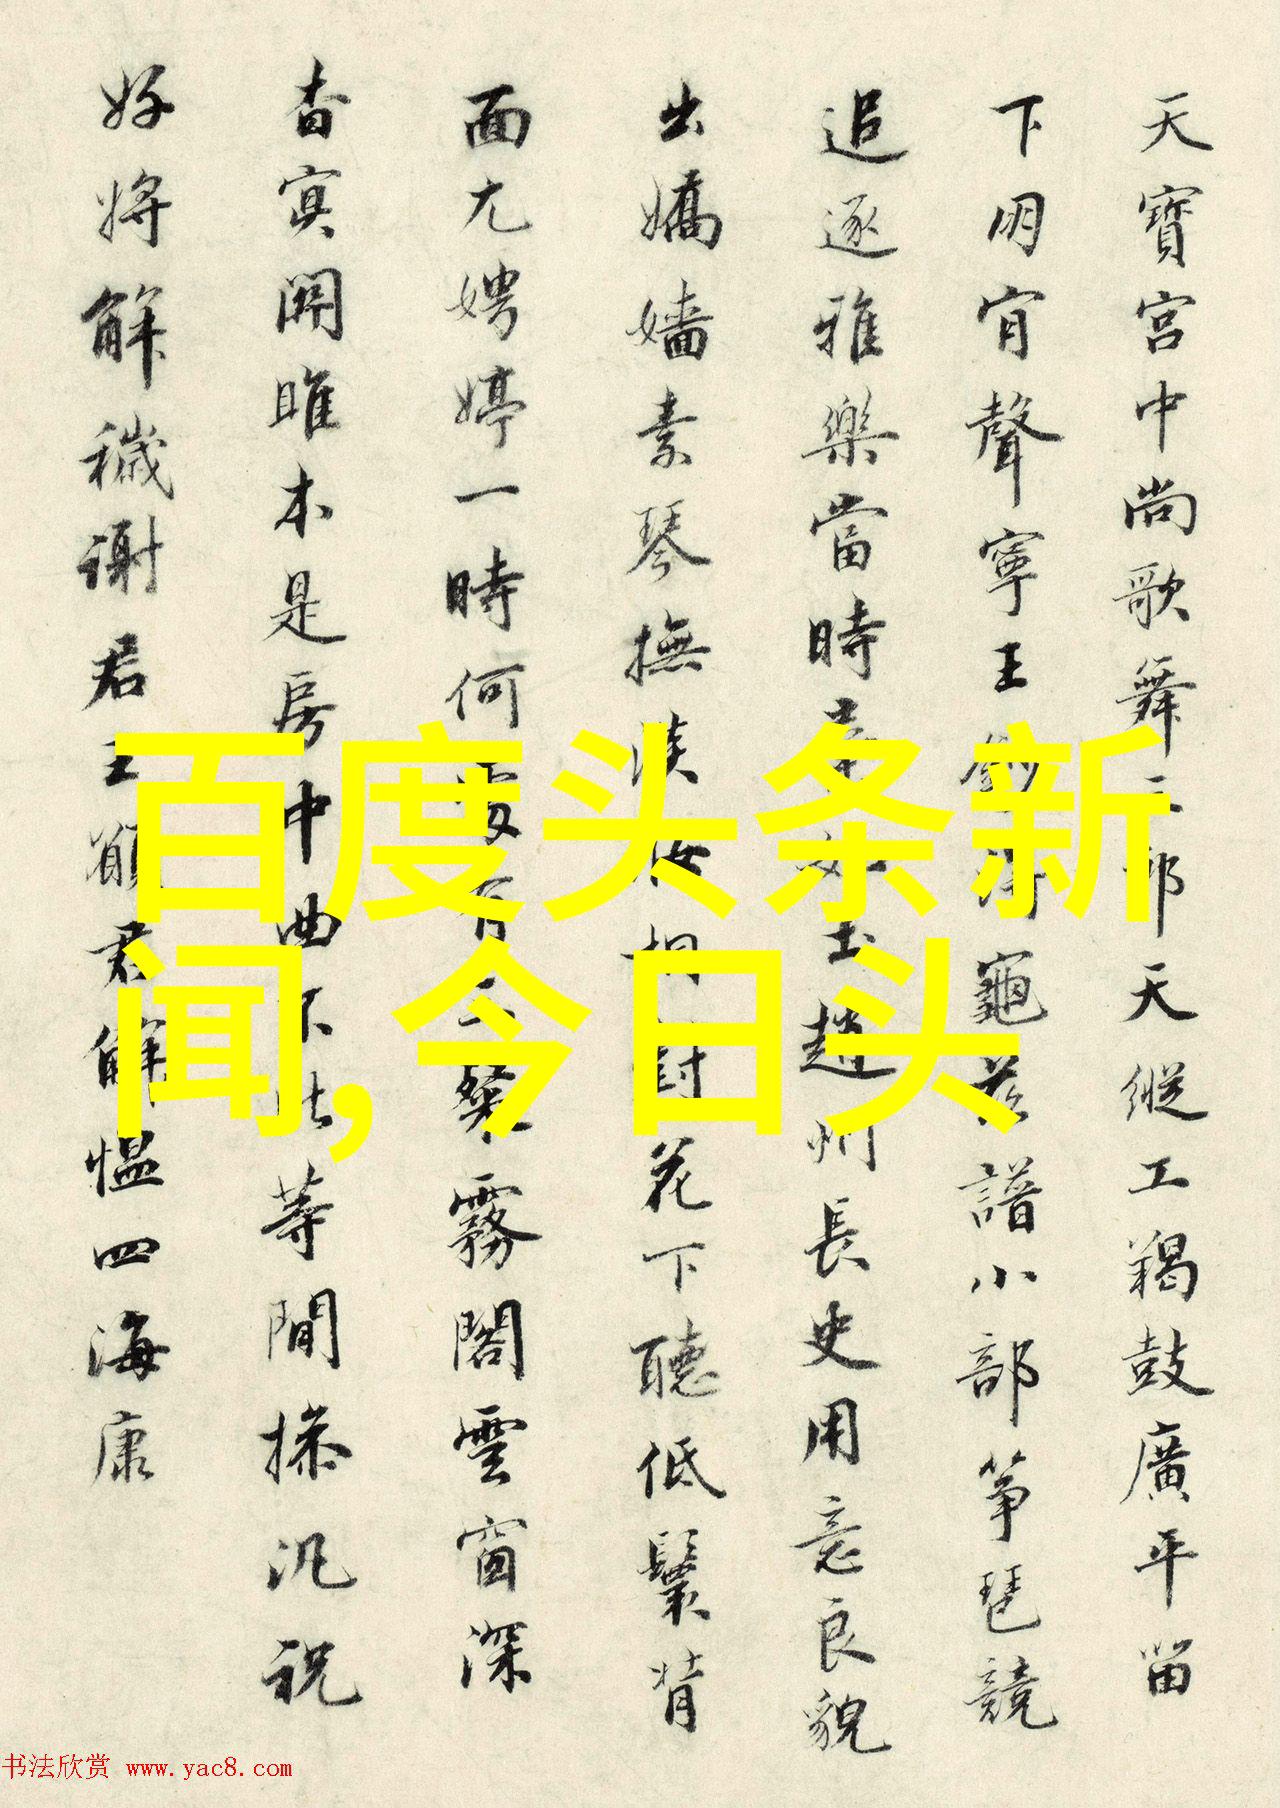 天寶宮中尚歌舞三郎天縱工羯鼓廣平留
下明宵聲寧王龜茲譜小部箏琶競
追逐雅樂當時趙州長史用意良貌
出嬌嬙素琴撫花下聽低鬟背
面尤娉婷一時何處有霧閣雲窗深
杳冥關雎本是房中曲不比等閒操汎祝
好將解穢謝君王願君解慍四海康
百度头条新
闻,今日头
书法欣赏 www.yac8.com